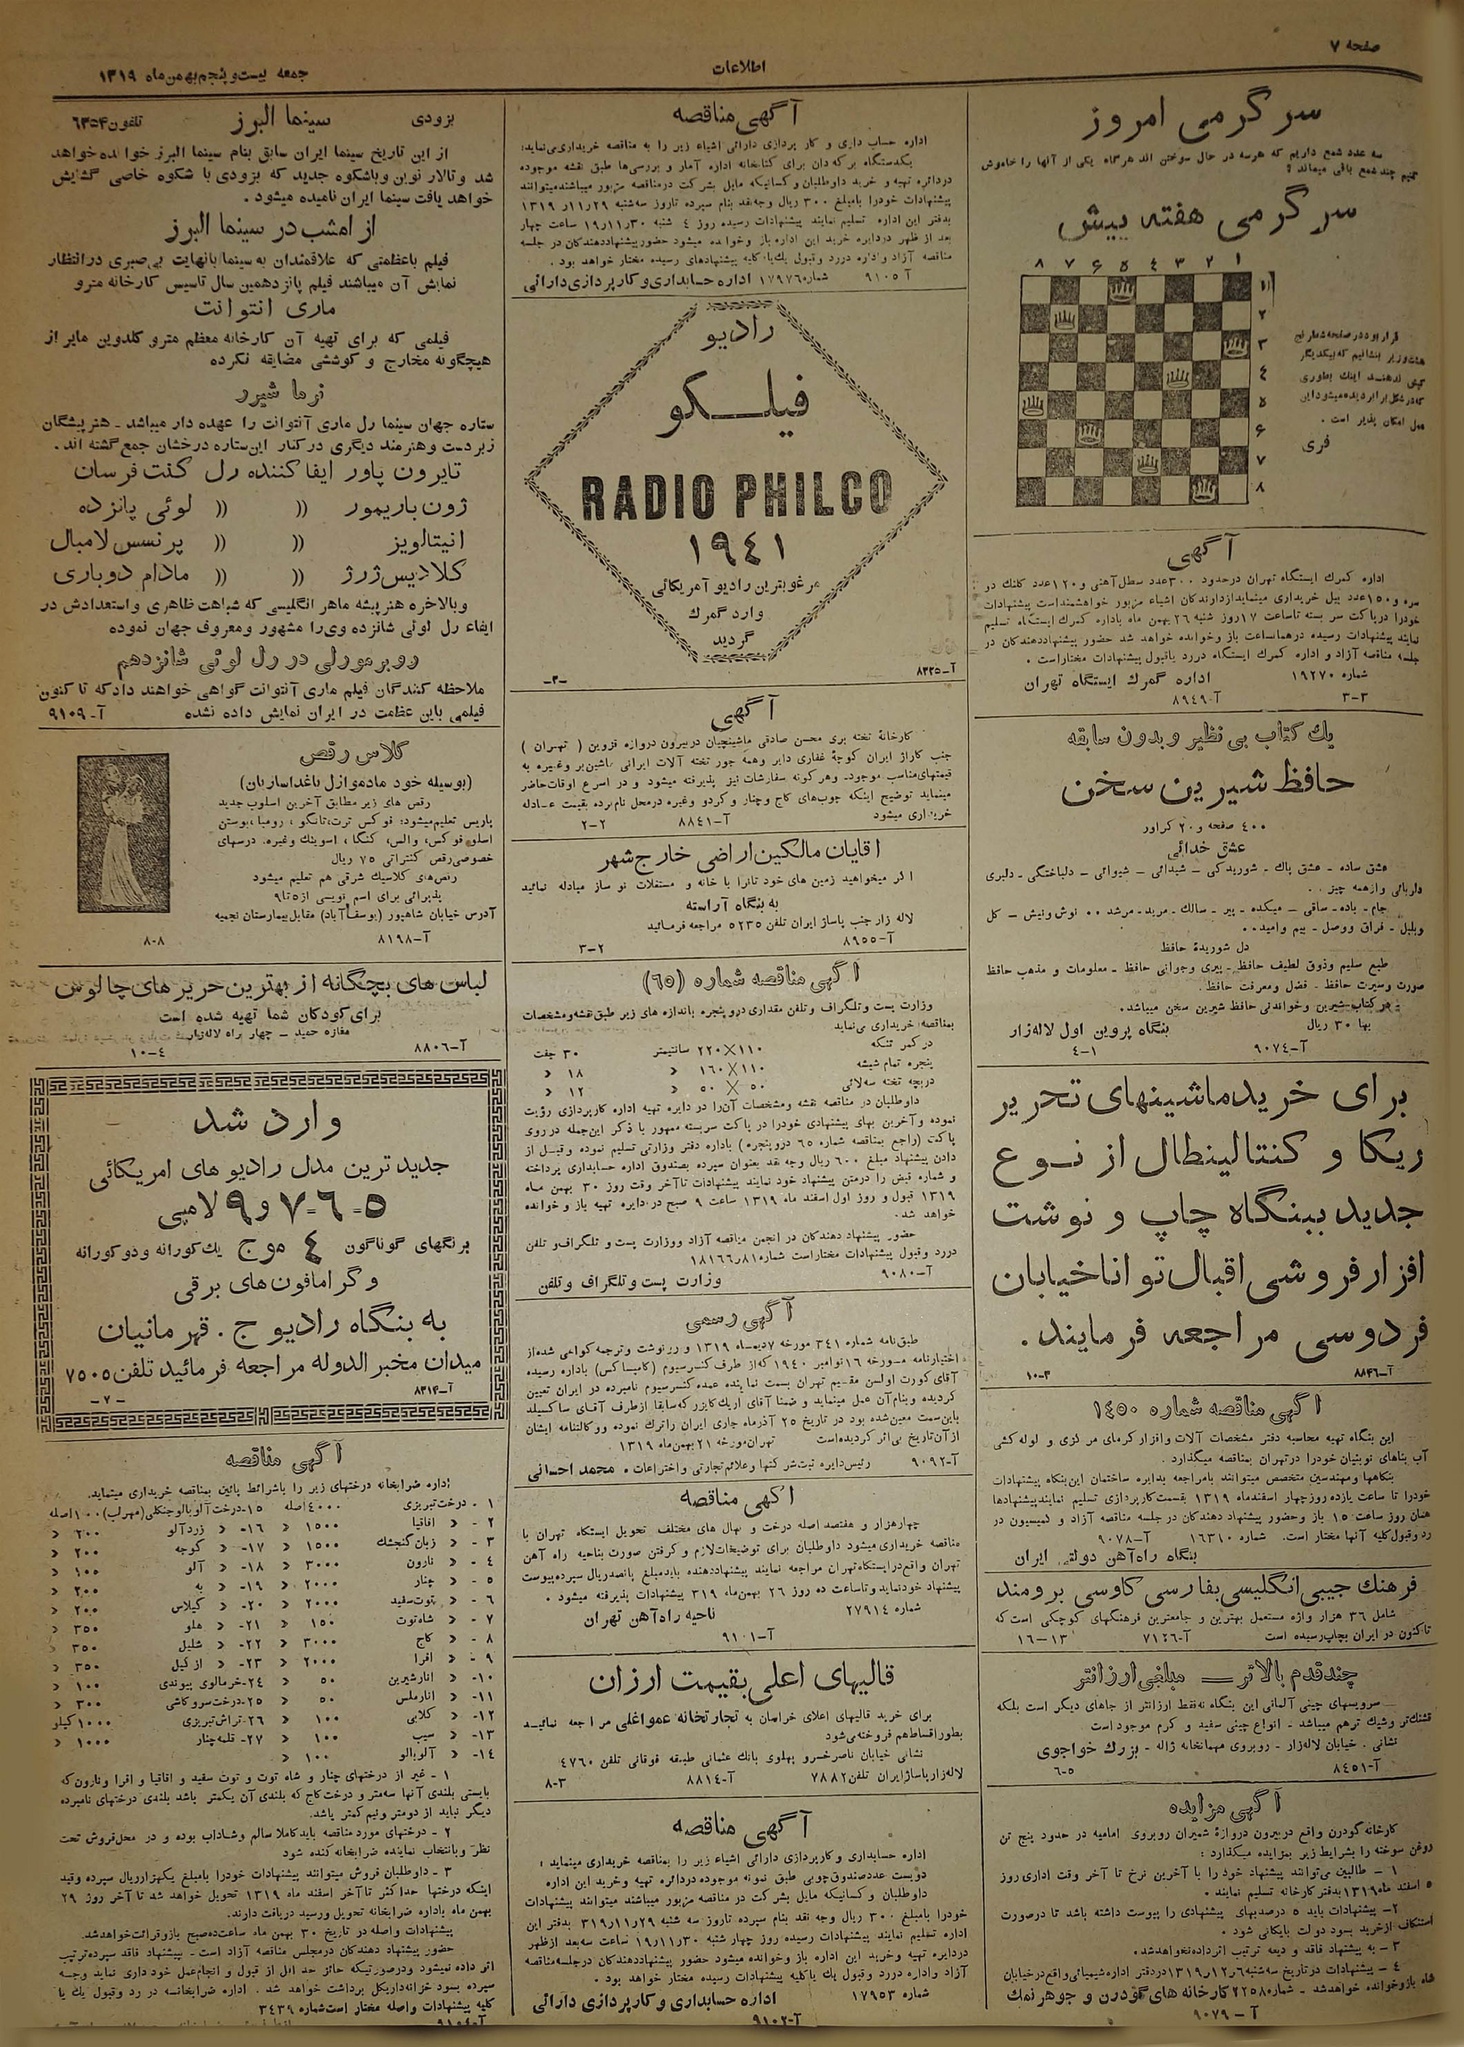 صفحه ۷
اطلاعات
جمعه بیست و پنجم بهمن ماه ۱۳۱۹
سرگرمی امروز
سه عدد شمع داریم که هرسه در حال سوختن اند هرگاه یکی از آنها را خاموش
کنیم چند شمع باقی میماند ؟
سرگرمی هفته پیش
۸ ۷ ۶ ۵ ٤ ۳ ۲ ۱
۱
۲
۳
٤
۵
۶
۷
۸
قرار بود در صفحه شطرنج
هشت وزیر بنشانیم که بیکدیگر
کیش ندهند اینك بطوری
که در شکل برابر دیده میشود این
عمل امکان پذیر است .
فری
آگهی
اداره کمرك ایستگاه تهران درحدود ۳۰۰ عدد سطل آهنی و ۱۲۰ عدد کلنك دو
سره و ۱۵۰ عدد بیل خریداری مینماید از دارندگان اشیاء مزبور خواهشمند است پیشنهادات
خودرا درپاکت سر بسته تاساعت ۱۷ روز شنبه ۲۶ بهمن ماه باداره کمرك ایستگاه تسلیم
نمایند پیشنهادات رسیده درهمانساعت باز وخوانده خواهد شد حضور پیشنهاد دهندکان در
جلسه مناقصه آزاد و اداره کمرك ایستگاه دررد یاقبول پیشنهادات مختاراست .
شماره ۱۹۲۷۰ اداره گمرك ایستگاه تهران
۳-۳ آ-۸۹٤۹
یك کتاب بی نظیر و بدون سابقه
حافظ شیرین سخن
٤۰۰ صفحه و ۲۰ کراور
عشق خدائی
عشق ساده - عشق پاك - شوریدکی - شیدائی - شیوائی - دلباختگی - دلبری
دلربائی وازهمه چیز . .
جام - باده - ساقی - میکده - پیر - سالك - مرید - مرشد . . نوش ونیش - کل
وبلبل - فراق ووصل - بیم وامید . .
دل شوریدۀ حافظ
طبع سلیم وذوق لطیف حافظ - پیری وجوانی حافظ - معلومات و مذهب حافظ
صورت وسیرت حافظ - فضل ومعرفت حافظ .
در کتاب شیرین وخواندنی حافظ شیرین سخن میباشد.
بها ۳۰ ریال بنگاه پروین اول لاله زار
آ-۹۰۷٤ ٤-۱
برای خرید ماشینهای تحریر
ریکا و کنتالینطال از نوع
جدید ببنگاه چاپ و نوشت
افزار فروشی اقبال توانا خیابان
فردوسی مراجعه فرمایند .
آ-۸۸۴۶ ۱۰-۳
آگهی مناقصه شماره ۱٤۵۰
این بنگاه تهیه محاسبه دفتر مشخصات آلات وافزار گرمای مرکزی و لوله کشی
آب بناهای نوبنیان خودرا درتهران بمناقصه میگذارد .
بنگاهها ومهندسین متخصص میتوانند بامراجعه بدایره ساختمان این بنگاه پیشنهادات
خودرا تا ساعت یازده روز چهار اسفند ماه ۱۳۱۹ بقسمت کارپردازی تسلیم نمایند پیشنهادها
همان روز ساعت ۱۵ باز وحضور پیشنهاد دهندکان در جلسه مناقصه آزاد و کمیسیون در
رد وقبول کلیه آنها مختار است. شماره ۱۶۳۱۰ آ-۹۰۷۸
بنگاه راه آهن دولتی ایران
فرهنك جیبی انگلیسی بفارسی کاوسی برومند
شامل ۳۶ هزار واژه مستعمل بهترین و جامعترین فرهنگهای کوچکی است که
تاکنون در ایران بچاپ رسیده است آ-۷۱۲۶ ۱۶-۱۳
چند قدم بالاتر = مبلغی ارزانتر
سرویسهای چینی آلمانی این بنگاه نه فقط ارزانتر از جاهای دیگر است بلکه
قشنك تر وشیك ترهم میباشد - انواع چینی سفید و کرم موجود است
نشانی . خیابان لاله زار - روبروی مهمانخانه ژاله - بزرك خواجوی
آ-۸٤۵۱ ۶-۵
آگهی مزایده
کارخانه گودرن واقع دربیرون دروازۀ شمیران روبروی امامیه در حدود پنج تن
روغن سوخته را بشرایط زیر بمزایده میگذارد :
۱ - طالبین می توانند پیشنهاد خود را با آخرین نرخ تا آخر وقت اداری روز
۵ اسفند ماه ۱۳۱۹ بدفتر کارخانه تسلیم نمایند .
۲- پیشنهادات باید ۵ درصدبهای پیشنهادی را پیوست داشته باشد تا درصورت
استنکاف از خرید بسود دولت بایگانی شود .
۳ - به پیشنهاد فاقد و دیعه ترتیب اثرداده نخواهدشد.
٤ - پیشنهادات درتاریخ سه شنبه ۶ر۱۲ر۱۳۱۹ دردفتر اداره شیمیائی واقع درخیابان
شاه باز وخوانده خواهد شد - شماره ۲۲۵۸ کارخانه های گودرن و جوهر نمك
آ - ۹۰۷۹
آگهی مناقصه
اداره حساب داری و کار پردازی دارائی اشیاء زیر را به مناقصه خریداری می نماید:
یکدستگاه برکه دان برای کتابخانه اداره آمار و بررسی ها طبق نقشه موجوده
دردائره تهیه و خرید داوطلبان و کسانیکه مایل بشرکت درمناقصه مزبور میباشند میتوانند
پیشنهادات خودرا بامبلغ ۳۰۰ ریال وجه نقد بنام سپرده تاروز سه شنبه ۲۹ر۱۱ر۱۳۱۹
بدفتر این اداره تسلیم نمایند پیشنهادات رسیده روز ٤ شنبه ۳۰ر۱۱ر۱۹ ساعت چهار
بعد از ظهر دردایره خرید این اداره باز وخوانده میشود حضور پیشنهاد دهندکان در جلسه
مناقصه آزاد و اداره دررد وقبول یك یا کلیه پیشنهادهای رسیده مختار خواهد بود .
آ-۹۱۰۵ شماره ۱۷۹۷۶ اداره حسابداری و کارپردازی دارائی
رادیو
فیلکو
RADIO PHILCO
۱۹٤۱
مرغوبترین رادیو آمریکائی
وارد گمرك
گردید
آ-۸۳۲۵ -۳-
آگهی
کارخانۀ تخته بری محسن صادقی ماشینچیان دربیرون دروازه قزوین ( تهران )
جنب کاراژ ایران کوچۀ غفاری دایر وهمه جور تخته آلات ایرانی ماشین بر وغیره به
قیمتهای مناسب موجود. وهرکونه سفارشات نیز پذیرفته میشود و در اسرع اوقات حاضر
مینماید توضیح اینکه چوب های کاج وچنار و کردو وغیره درمحل نام برده بقیمت عادله
خریداری میشود آ-۸۸٤۱ ۲-۲
آقایان مالکین اراضی خارج شهر
اگر میخواهید زمین های خود تانرا با خانه و مستغلات نو ساز مبادله نمائید
به بنگاه آراسته
لاله زار جنب پاساژ ایران تلفن ۵۲۳۵ مراجعه فرمائید
آ-۸۹۵۵ ۳-۲
آگهی مناقصه شماره (۶۵)
وزارت پست و تلگراف و تلفن مقداری درو پنجره باندازه های زیر طبق نقشه ومشخصات
بمناقصه خریداری می نماید
در کمر تنکه ۱۱۰×۲۲۰ سانتیمتر ۳۰ جفت
پنجره تمام شیشه ۱۱۰×۱۶۰ « ۱۸ «
دریچه تخته سه لائی ۵۰×۵۰ « ۱۲ «
داوطلبان در مناقصه نقشه ومشخصات آن را در دایره تهیه اداره کارپردازی رؤیت
نموده و آخرین بهای پیشنهادی خودرا در پاکت سربسته ممهور با ذکر این جمله در روی
پاکت (راجع بمناقصه شماره ۶۵ دروپنجره) باداره دفتر وزارتی تسلیم نموده وقبل از
دادن پیشنهاد مبلغ ۶۰۰ ریال وجه نقد بعنوان سپرده بصندوق اداره حسابداری پرداخته
و شماره قبض را درمتن پیشنهاد خود نمایند پیشنهادات تاآخر وقت روز ۳۰ بهمن ماه
۱۳۱۹ قبول و روز اول اسفند ماه ۱۳۱۹ ساعت ۹ صبح در دایره تهیه باز و خوانده
خواهد شد.
حضور پیشنهاد دهندکان در انجمن مناقصه آزاد ووزارت پست و تلگراف و تلفن
دررد وقبول پیشنهادات مختاراست شماره ۱۸۱۶۶٫۸۱
آ-۹۰۸۰ وزارت پست و تلگراف و تلفن
آگهی رسمی
طبق نامه شماره ۳٤۱ مورخه ۷ دیماه ۱۳۱۹ و رونوشت و ترجمه کواهی شده از
اختیارنامه مورخه ۱۶ نوامبر ۱۹٤۰ که از طرف کنسرسیوم (کامپاکس) باداره رسیده
آقای کورت اولسن مقیم تهران بسمت نماینده عمده کنسرسیوم نامبرده در ایران تعیین
کردیده وبنام آن عمل مینماید و ضمنا آقای اریك کایزر که سابقا ازطرف آقای ساکسیلد
باین سمت معین شده بود در تاریخ ۲۵ آذرماه جاری ایران راترك نموده ووکالتنامه ایشان
از آن تاریخ بی اثر گردیده است تهران مورخه ۲۱ بهمن ماه ۱۳۱۹ .
آ-۹۰۹۲ رئیس دایره ثبت شرکتها وعلائم تجارتی واختراعات . محمد احسانی
آگهی مناقصه
چهارهزار و هفتصد اصله درخت و نهال های مختلف تحویل ایستگاه تهران با
مناقصه خریداری میشود داوطلبان برای توضیحات لازم و کرفتن صورت بناحیه راه آهن
تهران واقع درایستگاه تهران مراجعه نمایند پیشنهاد دهنده باید مبلغ پانصد ریال سپرده پیوست
پیشنهاد خودنماید وتاساعت ده روز ۲۶ بهمن ماه ۳۱۹ پیشنهادات پذیرفته میشود .
شماره ۲۷۹۱٤ ناحیه راه آهن تهران
آ-۹۱۰۱
قالیهای اعلی بقیمت ارزان
برای خرید قالیهای اعلای خراسان به تجارتخانه عمواغلی مراجعه نمائید
بطور اقساط هم فروخته می شود
نشانی خیابان ناصرخسرو پهلوی بانك عثمانی طبقه فوقانی تلفن ٤۷۶۰
لاله زار پاساژ ایران تلفن ۷۸۸۲ آ-۸۸۱٤ ۸-۳
آگهی مناقصه
اداره حسابداری و کارپردازی دارائی اشیاء زیر را بمناقصه خریداری مینماید :
دویست عدد صندوق چوبی طبق نمونه موجوده دردائره تهیه وخرید این اداره
داوطلبان و کسانیکه مایل بشرکت در مناقصه مزبور میباشند میتوانند پیشنهادات
خودرا بامبلغ ۳۰۰ ریال وجه نقد بنام سپرده تاروز سه شنبه ۲۹ر۱۱ر۳۱۹ بدفتر این
اداره تسلیم نمایند پیشنهادات رسیده روز چهار شنبه ۳۰ر۱۱ر۱۹ ساعت سه بعد ازظهر
دردایره تهیه وخرید این اداره باز وخوانده میشود حضور پیشنهاد دهندکان درجلسه مناقصه
آزاد واداره دررد وقبول یك یاکلیه پیشنهادات رسیده مختار خواهد بود .
شماره ۱۷۹۵۳ اداره حسابداری و کارپردازی دارائی
آ-۹۱۰۲
بزودی سینما البرز تلفون ۶۳۵۴
از این تاریخ سینما ایران سابق بنام سینما البرز خوانده خواهد
شد وتالار نوین وباشکوه جدید که بزودی با شکوه خاصی گشایش
خواهد یافت سینما ایران نامیده میشود .
از امشب در سینما البرز
فیلم باعظمتی که علاقمندان به سینما بانهایت بی صبری درانتظار
نمایش آن میباشند فیلم پانزدهمین سال تاسیس کارخانه مترو
ماری انتوانت
فیلمی که برای تهیه آن کارخانه معظم مترو گلدوین مایر از
هیچگونه مخارج و کوششی مضایقه نکرده
نرما شیرر
ستاره جهان سینما رل ماری آنتوانت را عهده دار میباشد - هنرپیشگان
زبردست وهنرمند دیگری در کنار این ستاره درخشان جمع گشته اند .
تایرون پاور ایفا کننده رل کنت فرسان
ژون باریمور (( (( لوئی پانزده
انیتالویز (( (( پرنسس لامبال
کلادیس ژرژ (( (( مادام دوباری
وبالاخره هنرپیشه ماهر انگلیسی که شباهت ظاهری واستعدادش در
ایفاء رل لوئی شانزده وی را مشهور ومعروف جهان نموده
روبر مورلی در رل لوئی شانزدهم
ملاحظه کنندگان فیلم ماری آنتوانت گواهی خواهند دادکه تاکنون
فیلمی باین عظمت در ایران نمایش داده نشده آ-۹۱۰۹
کلاس رقص
(بوسیله خود مادموازل باغداساریان)
رقص های زیر مطابق آخرین اسلوب جدید
پاریس تعلیم میشود: فوکس ترت، تانگو، رومبا، بوستن
اسلو فوکس، والس، کنگا، اسوینك وغیره. درسهای
خصوصی رقص کنتراتی ۷۵ ریال
رقص های کلاسیك شرقی هم تعلیم میشود
پذیرائی برای اسم نویسی از ۵ تا ۹
آدرس خیابان شاهپور (یوسف آباد) مقابل بیمارستان نجمیه
آ-۸۱۹۸ ۸-۸
لباس های بچگانه از بهترین حریر های چالوس
برای کودکان شما تهیه شده است
مغازه حمید - چهار راه لاله زار
آ-۸۸۰۶ ۱۰-٤
وارد شد
جدید ترین مدل رادیو های امریکائی
۵-۶-۷ و ۹ لامپی
برنگهای گوناگون ٤ موج یك کورانه ودو کورانه
وگرامافون های برقی
به بنگاه رادیو ج . قهرمانیان
میدان مخبرالدوله مراجعه فرمائید تلفن ۷۵۰۵
آ-۸۳۱۴ -۷-
آگهی مناقصه
اداره ضرابخانه درختهای زیر را باشرائط پائین بمناقصه خریداری مینماید.
۱ - درخت تبریزی ٤۰۰۰ اصله ۱۵-درخت آلوبالوجنگلی(مهرلب) ۱۰۰ اصله
۲ - « اقاقیا ۱۵۰۰ « ۱۶- « زردآلو ۲۰۰ «
۳ - « زبان گنجشك ۱۵۰۰ « ۱۷- « کوجه ۲۰۰ «
٤ - « نارون ۳۰۰۰ « ۱۸- « آلو ۱۰۰ «
۵ - « چنار ۲۰۰۰ « ۱۹- « به ۲۰۰ «
۶ - « توت سفید ۲۰۰۰ « ۲۰- « کیلاس ۲۰۰ «
۷ - « شاه توت ۱۵۰ « ۲۱- « هلو ۳۵۰ «
۸ - « کاج ۳۰۰۰ « ۲۲- « شلیل ۳۵۰ «
۹ - « افرا ۲۰۰۰ « ۲۳- « ازکیل ۳۵۰ «
۱۰- « انارشیرین ۵۰ « ۲٤-خرمالوی پیوندی ۱۰۰ «
۱۱- « انارملس ۵۰ « ۲۵-درخت سروکاشی ۳۰۰ «
۱۲- « کلابی ۱۰۰ « ۲۶-تراش تبریزی ۱۰۰۰ کیلو
۱۳- « سیب ۱۰۰ « ۲۷- قلمه چنار ۱۰۰۰ «
۱٤- « آلوبالو ۱۰۰ «
۱ - غیر از درختهای چنار و شاه توت و توت سفید و اقاقیا و افرا ونارون که
بایستی بلندی آنها سه متر و درخت کاج که بلندی آن یکمتر باشد بلندی درختهای نامبرده
دیگر نباید از دومتر ونیم کمتر باشد.
۲ - درختهای مورد مناقصه باید کاملا سالم وشاداب بوده و در محل فروش تحت
نظر وباانتخاب نماینده ضرابخانه کنده شود
۳ - داوطلبان فروش میتوانند پیشنهادات خودرا بامبلغ یکهزار ریال سپرده وقید
اینکه درختها حداکثر تا آخر اسفند ماه ۱۳۱۹ تحویل خواهد شد تا آخر روز ۲۹
بهمن ماه باداره ضرابخانه تحویل ورسید دریافت دارند.
پیشنهادات واصله در تاریخ ۳۰ بهمن ماه ساعت ده صبح باز وقرائت خواهدشد.
حضور پیشنهاد دهندکان درمجلس مناقصه آزاد است - پیشنهاد فاقد سپرده ترتیب
اثر داده نمیشود ودرصورتیکه حائز حد اقل از قبول و انجام عمل خود داری نماید وجه
سپرده بسود خزانه داریکل برداشت خواهد شد . اداره ضرابخانه در رد وقبول یك یا
کلیه پیشنهادات واصله مختار است شماره ۳٤۳۹
آ-۹۱۰٤